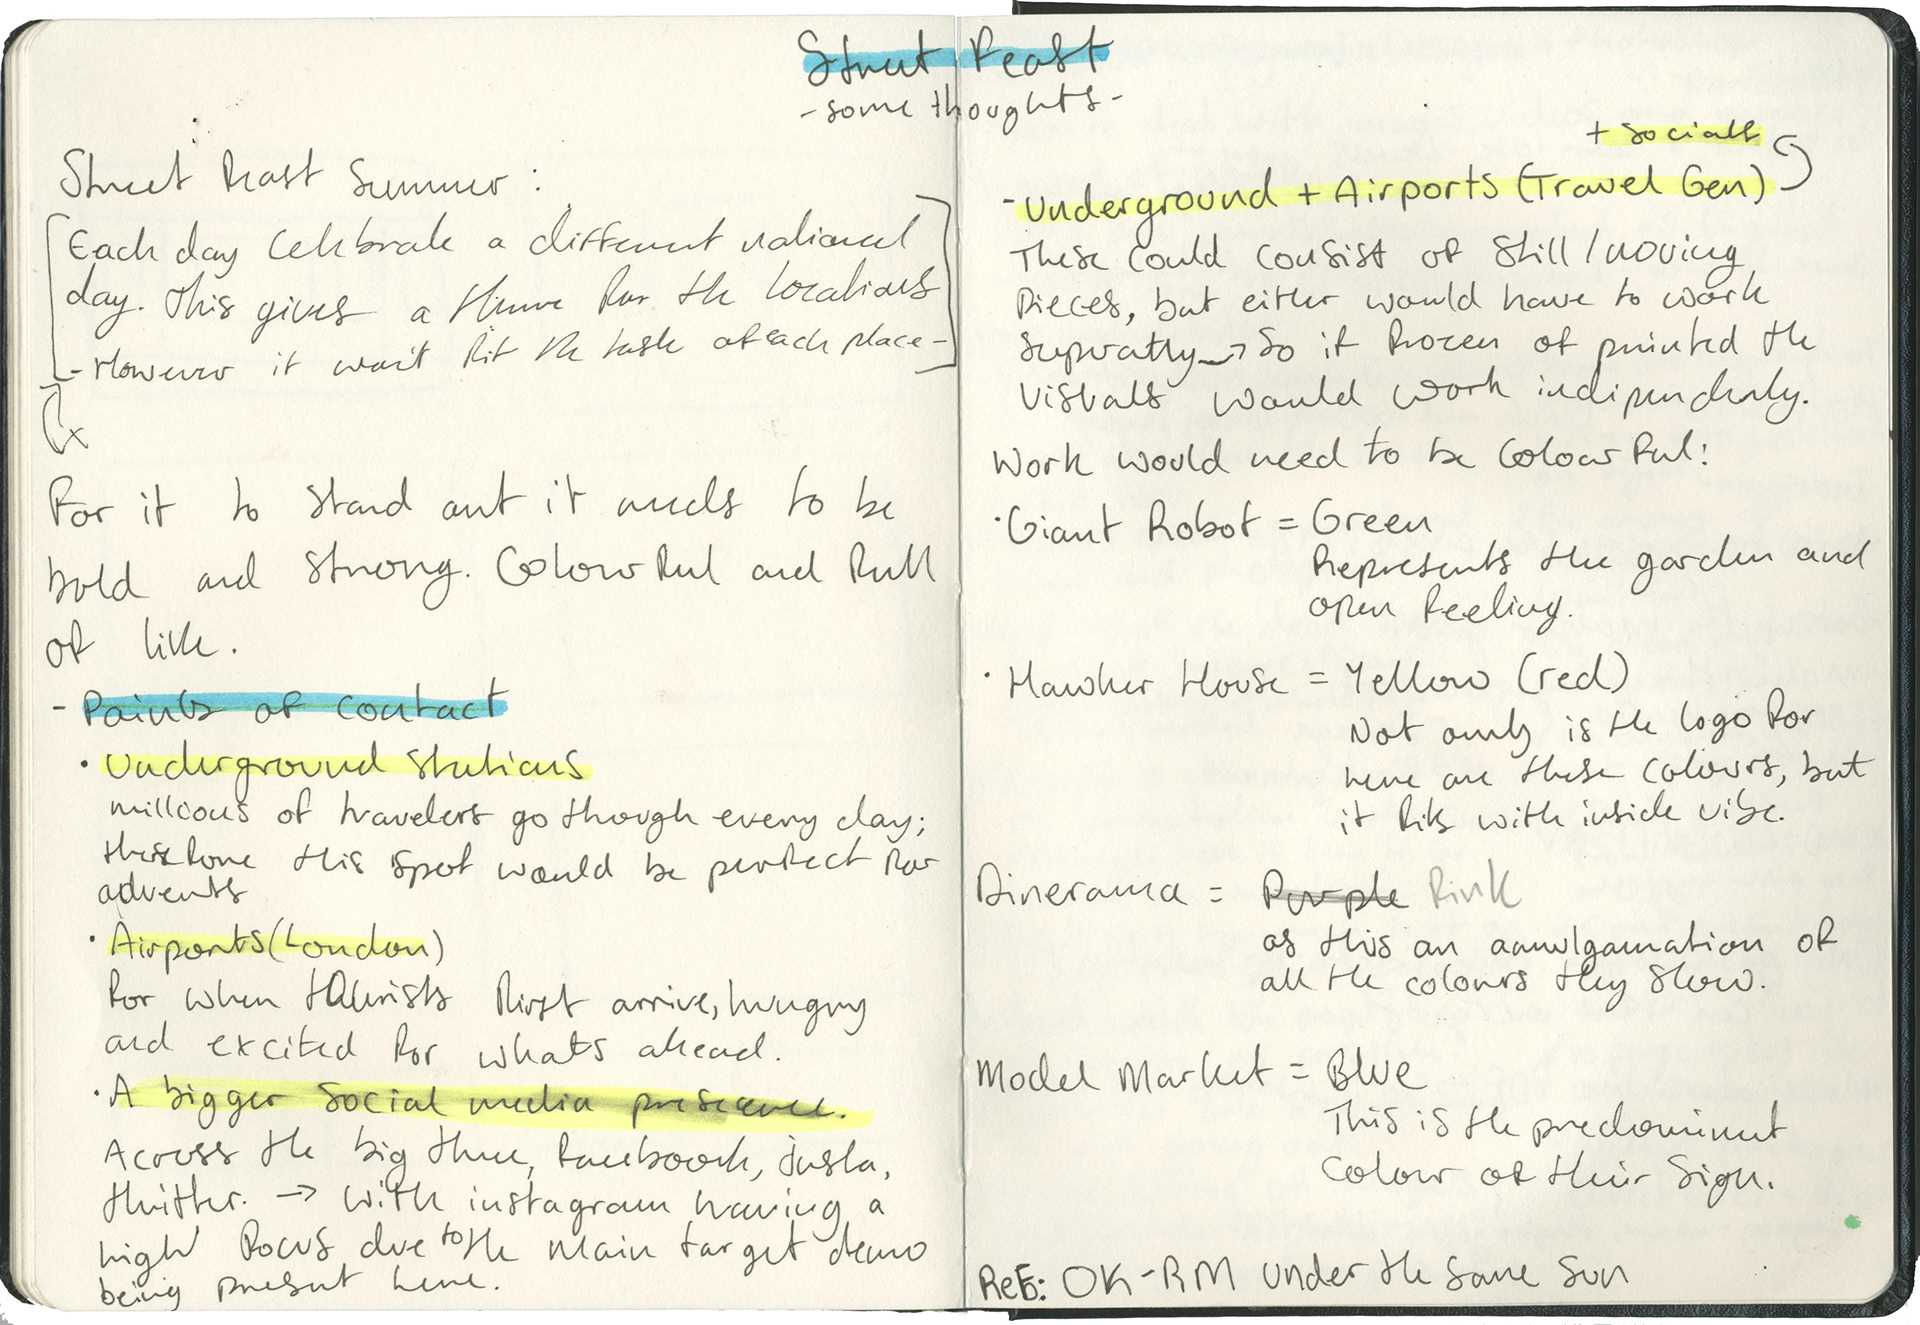 Street Feast
- some thoughts -
Street Feast Summer :
Each day celebrate a different national
day. This gives a theme for the locations
- However it won't fit the task of each place -
For it to stand out it needs to be
bold and strong. Colourful and full
of life.
- Points of contact
· Underground stations
millions of travelers go though every day;
therefore this spot would be perfect for
advents
· Airports (London)
for when tourists first arrive, hungry
and excited for whats ahead.
· A bigger social media presence.
Across the big three, facebook, insta,
twitter. → with instagram having a
high focus due to the main target demo
being present here.
+ socials
- Underground + Airports (Travel Gen)
These could consist of still / moving
pieces, but either would have to work
sepratly → So if frozen of printed the
visuals would work indipendenly.
Work would need to be colourful:
· Giant Robot = Green
Represents the garden and
open feeling.
· Hawker House = Yellow (red)
Not only is the logo for
here are these colours, but
it fits with inside vibe.
Dinerama = Purple Pink
as this an aamlgamation of
all the colours they show.
Model Market = Blue
This is the predominent
colour of their sign.
Ref: OK-RM Under the same sun